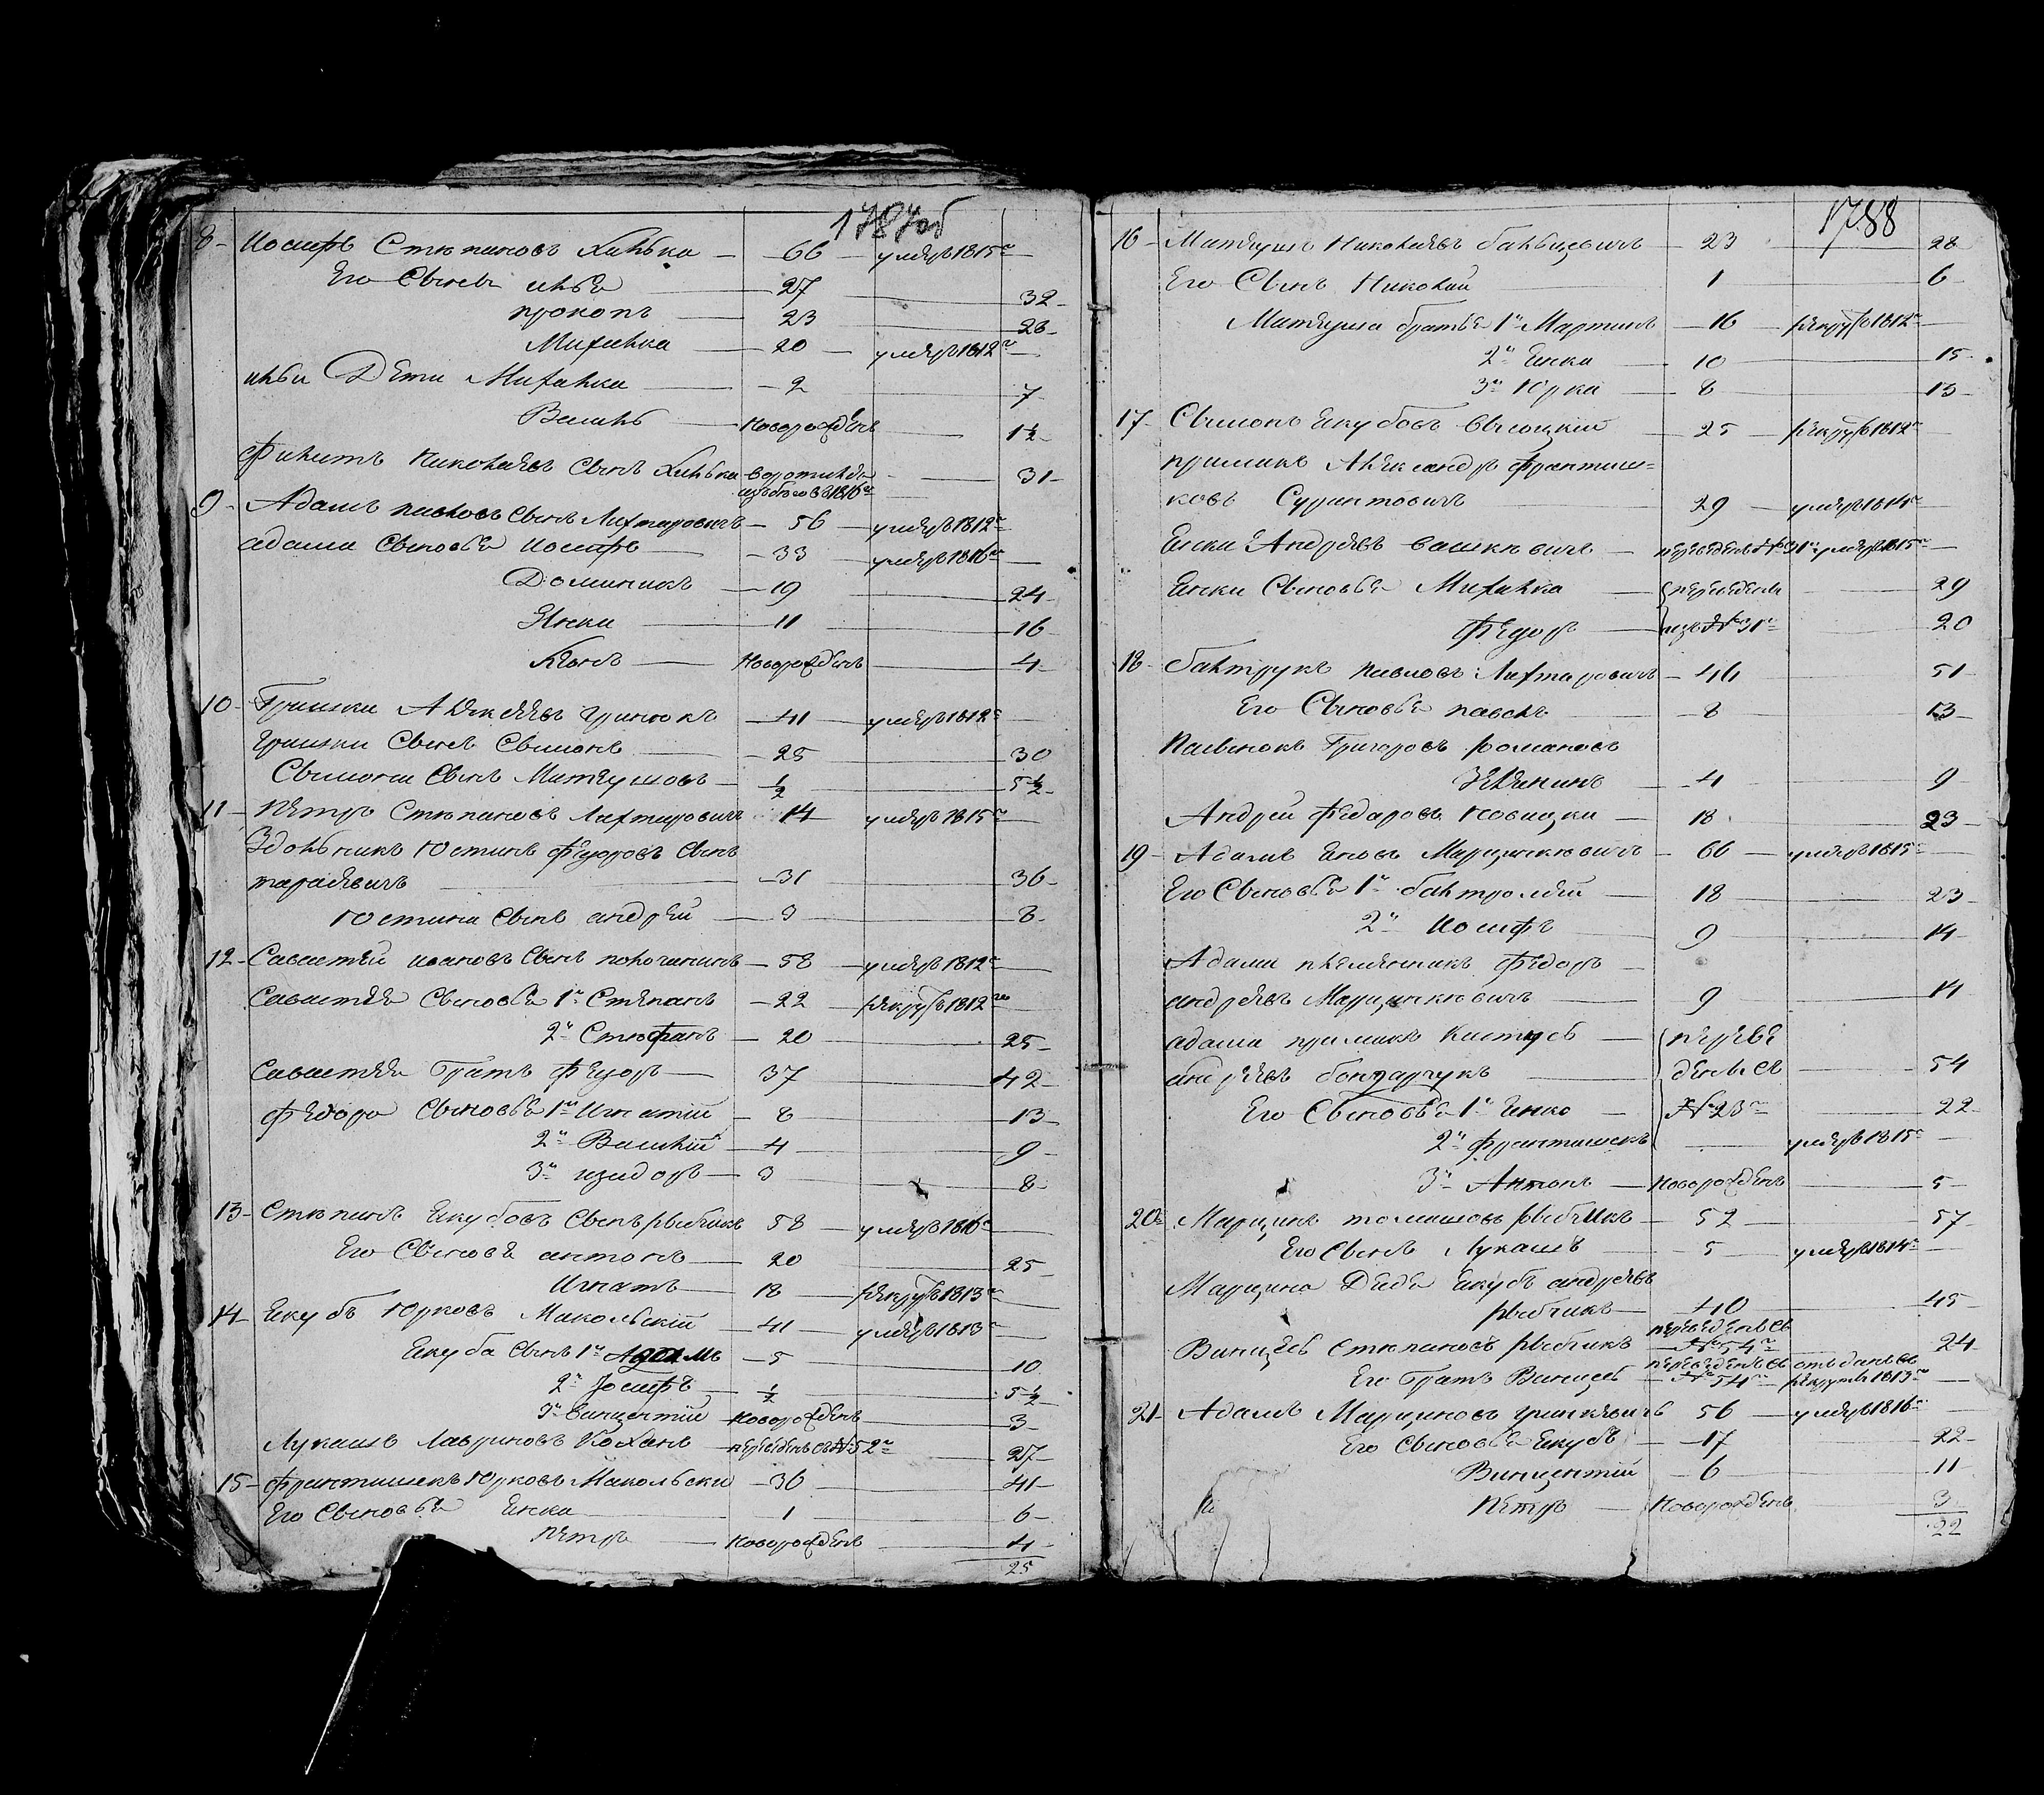 1787об
8- Иосифъ Степановъ Хилька - 66 - умеръ 1815го
Его Сынъ илья 27 32-
прокопъ 23 28-
Михалка 20 - умеръ 1812го
ильи Дети Михалка - 2 7
Василь - Новорожденъ 1½-
Филипъ Николаевъ Сынъ Хилька - воротился 31-
изъ бегов в 1816м
9- Адамъ павловъ Сынъ Лихтаровичъ - 56 - умеръ 1812го
адама Сыновья иосифъ - 33 - умеръ 1816го
Доминикъ - 19 24-
Янка - 11 16-
Леонъ - Новорожденъ 4-
10- Гришка Алексеевъ гринюкъ - 41 - умеръ 1812го
гришки Сынъ Сымонъ - 25 30
Сымона Сынъ Матеушовъ - ½ 5½-
11- Петръ Степановъ Лихтаровичъ 14 умеръ 1815го
Здольникъ Юстинъ Федоровъ Сынъ
тарасевичъ - 31 36-
Юстина Сынъ андрей - 3 8-
12- Саватей ивановъ Сынъ - 58 - умеръ 1812го
Саватея Сыновья 1й Степанъ - 22 - рекрутъ 1812го
2й Стефанъ - 20 25-
Саватея Братъ Федоръ - 37 42-
Федора Сыновья 1й Игнатий - 8 13-
2й Василий - 4 9-
3й изидоръ - 3 8-
13- Степанъ Якубовъ Сынъ рыбчикъ 58 - умеръ 1816го
Его Сыновья антонъ - 20 25-
Игнатъ - 18 - рекрутъ 1813го
14- Якубъ Юрковъ Макольский - 41 - умеръ 1813го
Якуба Сынъ 1й Адамъ - 5 10
2й Иосифъ - ½ 5½-
3й Винцентий - Новорожденъ 3-
Лукашъ Лавриновъ Коханъ - переведенъ съ № 52го 27-
15- Франтишекъ Юрковъ Макольски - 36 41-
Его Сыновья Янка 1 6-
Петръ - Новорожденъ 4-
25
1788
16- Матеушъ Николаевъ бальцевичъ - 23 28
Его Сынъ Николай 1 6-
Матеуша братья 1й Мартинъ - 16 - рекрутъ 1812го
2й Янка - 10 15-
3й Юрка - 8 13-
17- Сымонъ Якубовъ высоцкий - 25 - рекрутъ 1812го
примакъ Александръ франтиш=
ковъ 29 умеръ 1814го
Янка Андреевъ вашкевичъ - переведенъ № 31го умеръ 1815го
Янки Сыновья Михалка - переведены 29
Федоръ - изъ № 31го 20
18- балтрукъ павловъ Лихтаровичъ - 46 51-
Его Сыновья павелъ - 8 13-
Пасынокъ Григоровъ романовъ
4 9-
Андрей Федаровъ - 18 23-
19- Адамъ Яновъ Марцинкевичъ - 66 - умеръ 1815го
Его Сыновья 1й балтромей 18 23-
2й Иосифъ 9 14
Адама племянникъ Федоръ
андреевъ Марцинкевичъ 9 14
адама примакъ Кастусь - переве
андреевъ бондарчукъ дены съ 54
Его Сыновья 1й Янко - № 23го 22-
2й франтишекъ умеръ 1815го
3й Антонъ - Новорожденъ 5-
20- Марцинъ томашовъ рыбчикъ - 52 57-
Его Сынъ Лукашъ 5 умеръ 1814го
Марцина Дядя Якубъ андреевъ
рыбчикъ - 40 45
Винцесь Степановъ рыбчикъ переведенъ съ № 54го 24-
Его Братъ Винцесь переведенъ съ № 54го отданъ въ рекруты 1813го
21- Адамъ Марциновъ гринкевичъ 56 - умеръ 1816го
Его Сыновья Якубъ - 17 22-
Винцентий - 6 11-
Петръ - Новорожденъ 3
22